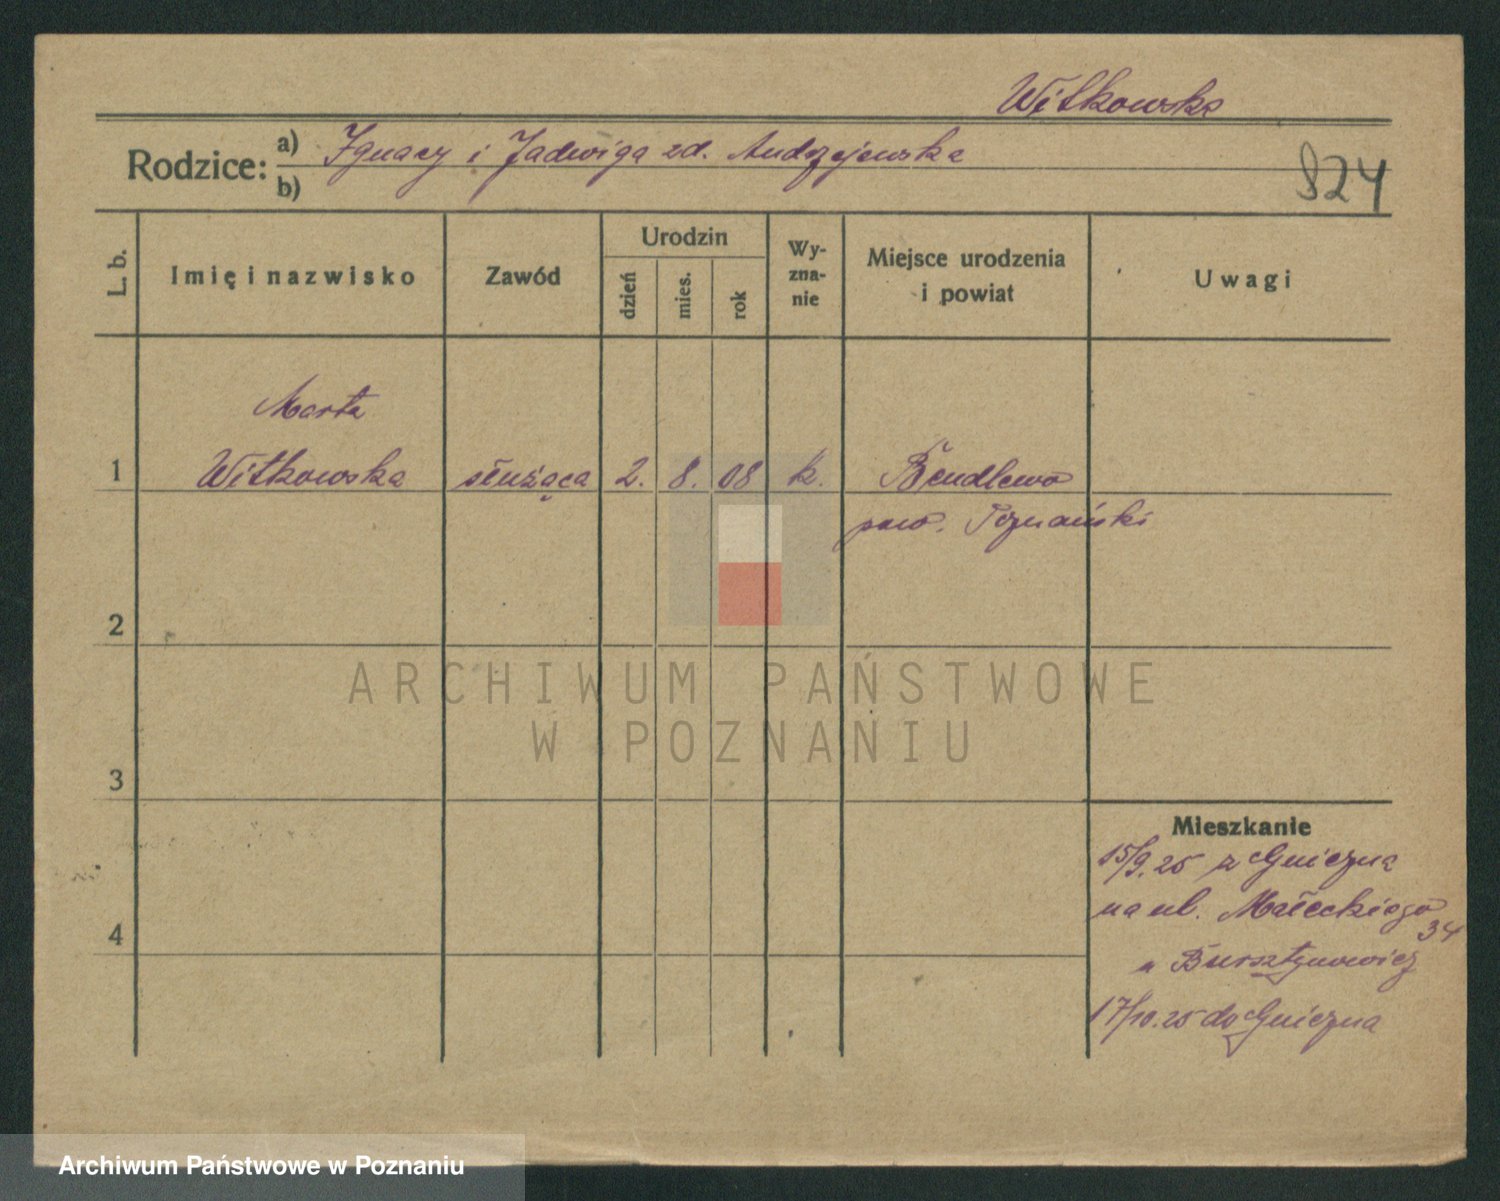 Witkowska
Rodzice: a) Ignacy i Jadwiga zd. Andrzejewska
b)
824
L. b.
Imię i nazwisko
Zawód
Urodzin
dzień
mies.
rok
Wy-
zna-
nie
Miejsce urodzenia
i powiat
Uwagi
Marta
1 Witkowska służąca 2. 8. 08 k. Bendlewo
pow. Poznański
2
3
4
Mieszkanie
15/9.25 z Gniezna
na ul. Małeckiego
34
u Bursztynowicz
17/10.25 do Gniezna
ARCHIWUM PAŃSTWOWE
W POZNANIU
Archiwum Państwowe w Poznaniu